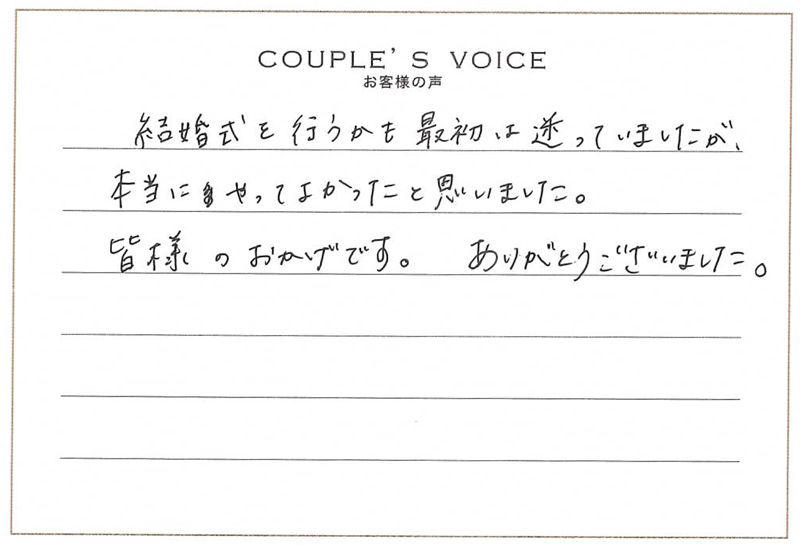 COUPLE'S VOICE
お客様の声
結婚式を行うかも最初は迷っていましたが、
本当にやってよかったと思いました。
皆様のおかげです。 ありがとうございました。